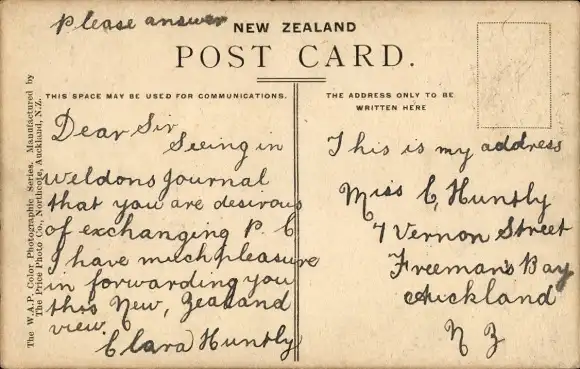 Please answer
NEW ZEALAND
POST CARD.
THIS SPACE MAY BE USED FOR COMMUNICATIONS.
THE ADDRESS ONLY TO BE
WRITTEN HERE
The W.A.P. Color Photographic Series. Manufactured by
The Price Photo Co., Northcote, Auckland, N.Z.
Dear Sir
Seeing in
weldons Journal
that you are desirous
of exchanging P. C
I have much pleasure
in forwarding you
this New, Zealand
view.
Clara Huntly
This is my address
Miss C, Huntly
7 Vernon Street
Freeman's Bay
Auckland
N Z